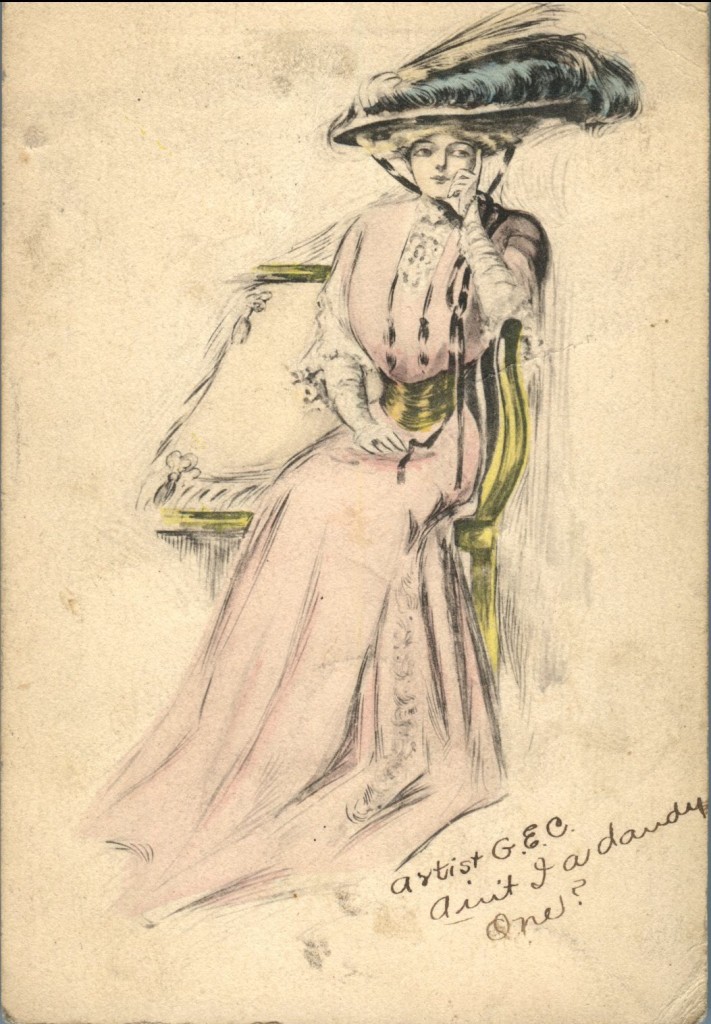 artist G.E.C.
Ain't I a dandy
One?